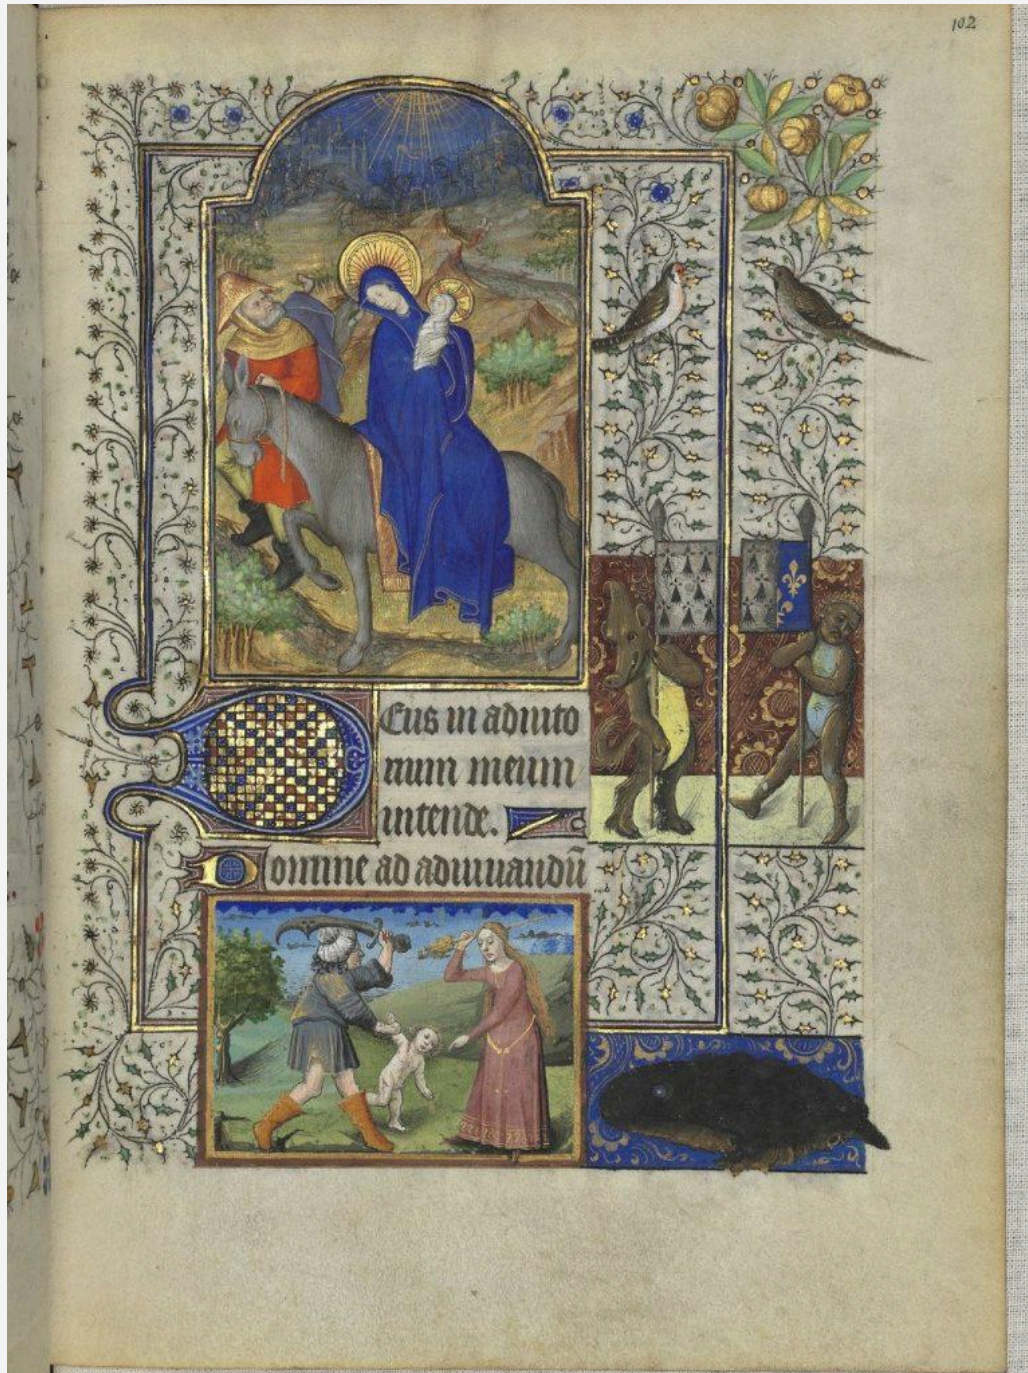 102
Deus in adiuto
rium meum
intende.
Domine ad adiuuandū